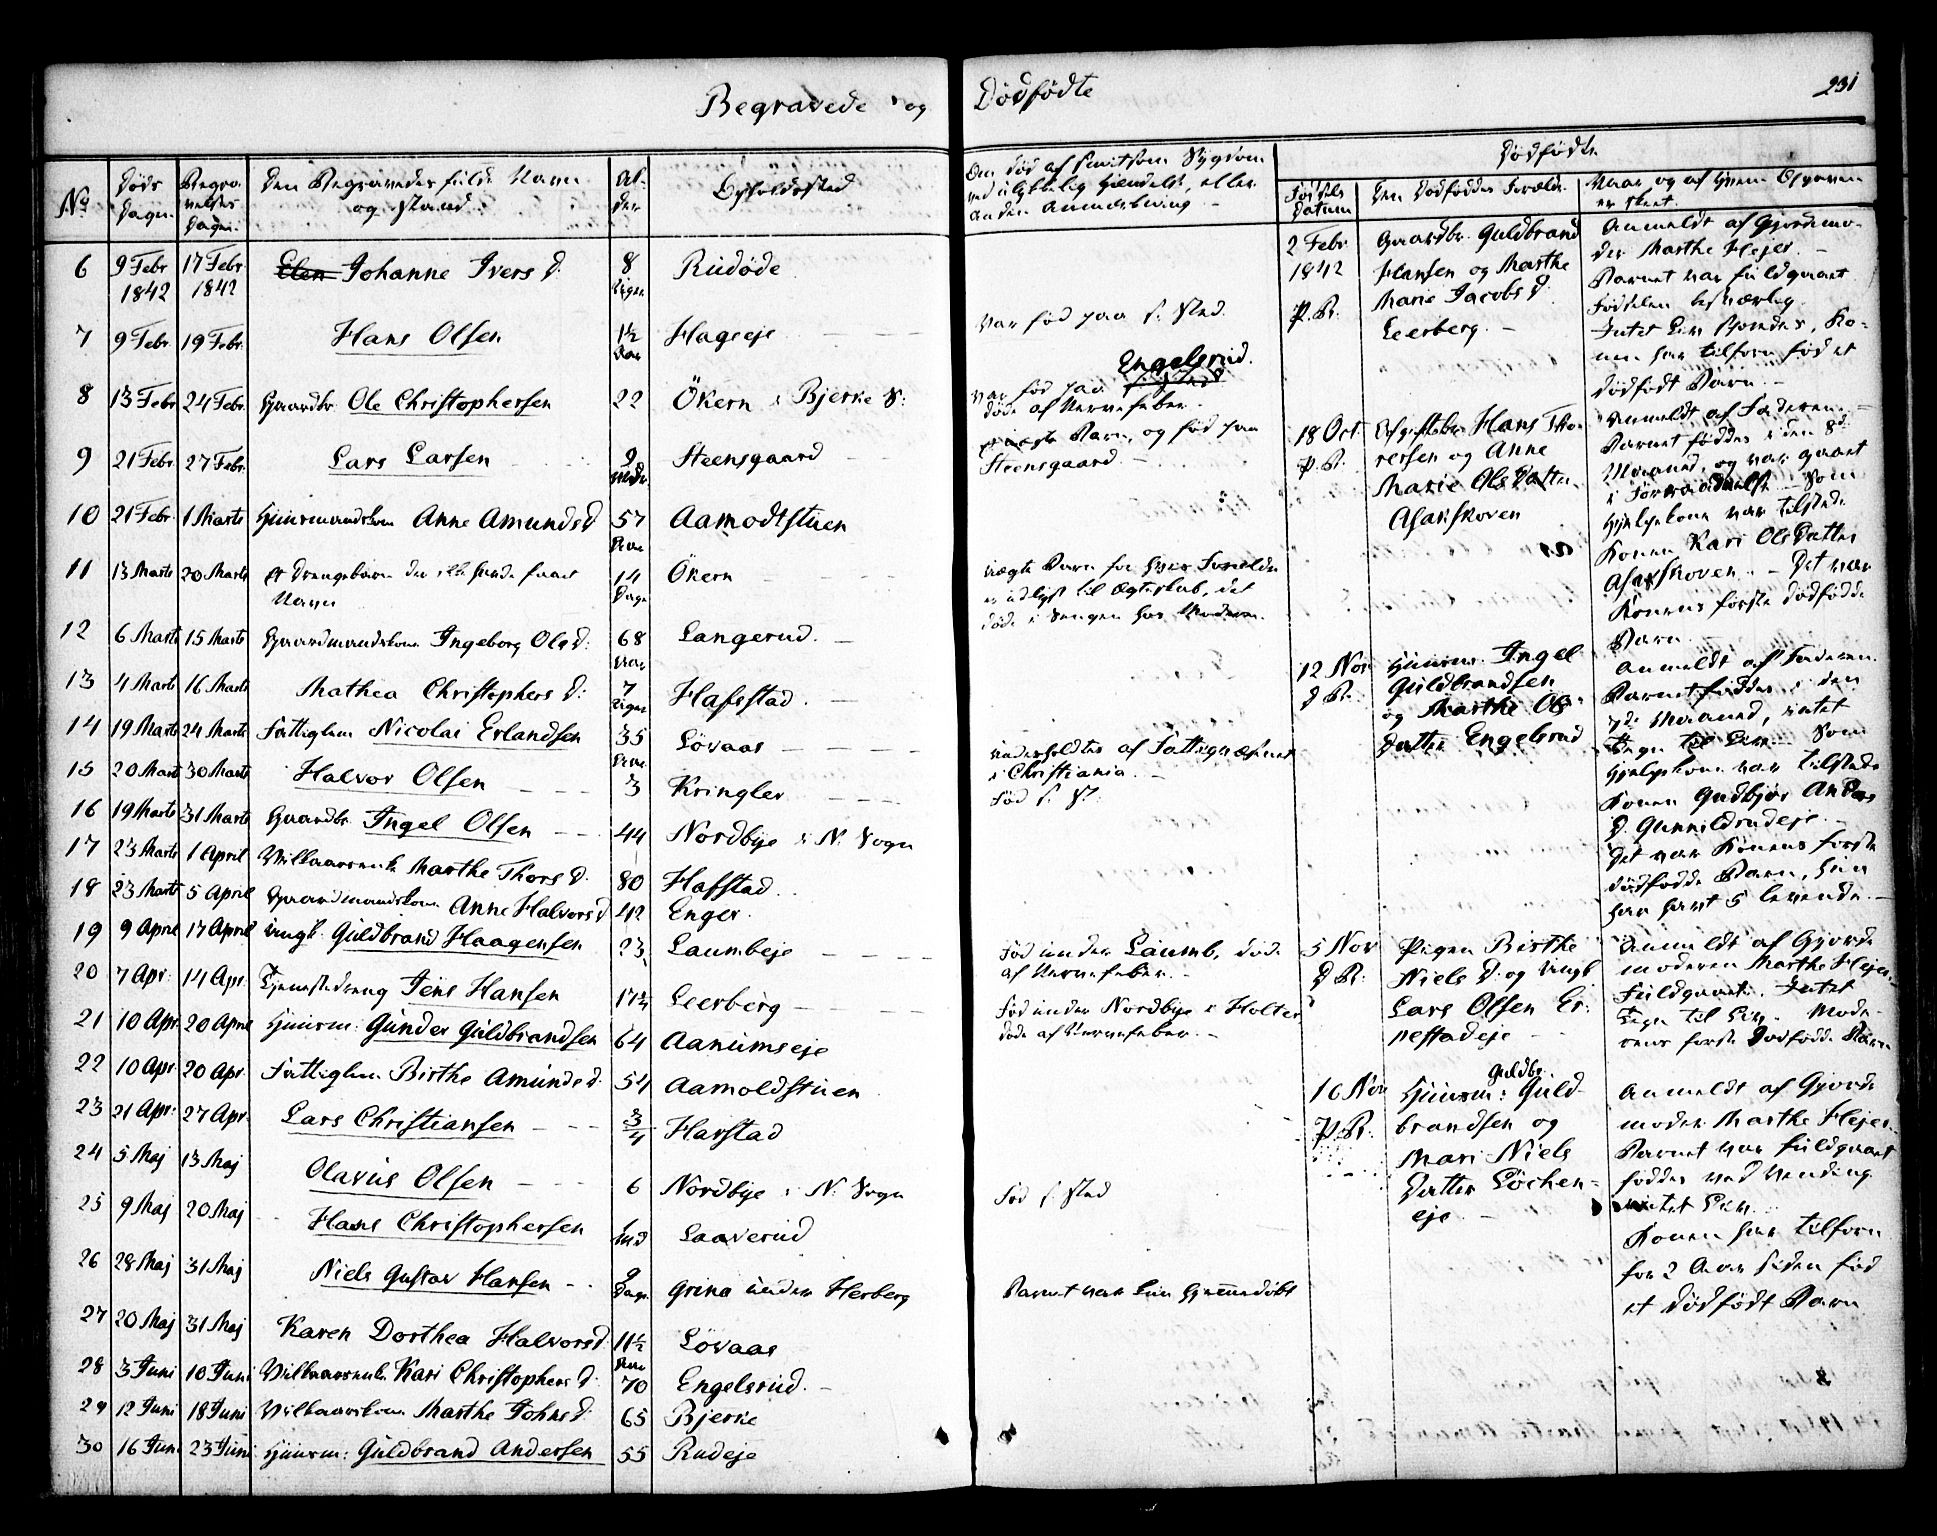 Begravede og
Dödfödte
231
No
Döds Dagen
Begravelses Dagen
Den Begravedes fulde Navn og Stand
Alder
Opholdssted
Om död af smitsom Sygdom
ved ulykkelig Hændelse, eller
anden Anmerkning
Dödfödte
Födsels Datum
Den Dödföddes Forældre
Naar og af hvem Opgaven er skeet
6 9 Febr 1842 17 Febr 1842 Johanne Ivers d. 8 Uger Rudöde
7 9 Febr. 19 Febr. Hans Olsen 1½ Aar Hageeje Var född paa s. Sted.
8 13 Febr 24 Febr. Gaardbr. Ole Christophersen 22 Ökern i Bjerke S: Var född paa Engelsrud.
döde af Nervefeber.
9 21 Febr. 27 Febr. Lars Larsen 9 Steensgaard Barn, og född paa
Steensgaard.
10 21 Febr. 1 Marts Huusmandskone Anne Amunds d 57 Aamodtstuen
11 13 Marts 20 Marts et Drengebarn der ikke havde faaet
Navn 14 Dage Ökern uægte Barn for hvis Forældre
er udlyst til Ægteskab, det
döde i Sengen hos Moderen.
12 6 Marts 15 Marts Gaardmandskone Ingeborg Ols d: 68 Aar Langerud.
13 4 Marts 16 Marts Mathea Christophers d: 7 Uger Hafsstad.
14 19 Marts 24 Marts Fattiglem Nicolai Erlandsen 35 Lövaas underholdtes af Fattigvæsenet
i Christiania.
15 20 Marts 30 Marts Halvor Olsen 3 Kringler Föd s. St:
16 19 Marts 31 Marts Gaardbr. Ingel Olsen 44 Nordbye i N: Sogn
17 23 Marts 1 April Marthe Thors d. 80 Hafstad.
18 23 Marts 5 April Gaardmandskone Anne Halvors d 42 Enger.
19 9 April 17 April Ungk. Guldbrand Haagensen 23 Laumbeje Föd under Laumb, döde
af Nervefeber.
20 7 Apr: 14 Apr. Tjenestedreng Jens Hansen 17½ Leerberg Föd under Nordbye i Holter
döde af Nervefeber.
21 10 Apr. 20 April Huusm: Gunder Guldbrandsen 64 Aanumseje
22 10 Apr. 20 Apr. Fattiglem Birthe Amunds d. 54 Aamoldstuen
23 21 Apr: 27 Apr. Lars Christiansen 3/4 Harstad
24 5 Maj 13 Maj Olavus Olsen 6 Nordbye i N: Sogn Föd s. Sted
25 9 Maj 20 Maj Hans Christophersen Laaverud
26 28 Maj 31 Maj Niels Gustav Hansen 9 Dage Grina under Herberg Barnet var kun hjemmedöbt
27 20 Maj 31 Maj Karen Dorthea Halvors d. 11½ Lövaas
28 3 Juni 10 Juni Kari Christophers d. 70 Engelsrud.
29 12 Juni 18 Juni Marthe Johns d. 65 Bjerke
30 16 Juni 23 Juni Huusm: Guldbrand Andersen 55 Rudeje
2 Febr 1842
P. R.
Gaardbr. Guldbrand
Hansen og Marthe
Marie Jacobs d.
Leerberg.
Anmeldt af Gjordemo-
der Marthe Hejer.
Barnet var fuldgaaet
Födselen besværlig.
Intet Liv Ko-
nen har tilforn född et
dödfödt Barn.
18 Oct.
P. R.
Hans Tho-
rersen og Anne
Marie Ols Datter
Asakskoven
Anmeldt af Faderen.
Barnet föddes i den 8de
Maaned, og var gaaet
i Forraadnelse. Som
Hjelpekone var tilstede
Konen Kari Ols Datter
Asakskoven. Det var
Konens förste dödfödde
Barn.
12 Nov
Huusm: Ingel
Guldbrandsen
og Marthe Ols
Datter Engelsrud
Anmeldt af Faderen.
Barnet föddes i den
7de Maaned, intet
Tegn til Liv. Som
Hjelpekone var tilstede
Konen Gudbjör Anders
D. Gunnildrudeje.
Det var Konens förste
dödfödde Barn, hun
har havt 5 levende.
5 Nov
Pigen Birthe
Niels d. og Ungk
Lars Olsen Er-
nestadeje
Anmeldt af Gjorde
moderen Marthe Hejer.
Fuldgaaet. Intet
Tegn til Liv. Mode-
rens förste Dödfödde Barn
16 Nov
P. R.
Guldbr.
Huusm: Guld-
brandsen og
Mari Niels
Datter Löchen-
eje
Anmeldt af Gjorde
moder Marthe Hejer.
Barnet var fuldgaaet
föddes ved Vending
intet Liv.
Konen har tilforn
for 2 Aar siden född
et dödfödt Barn